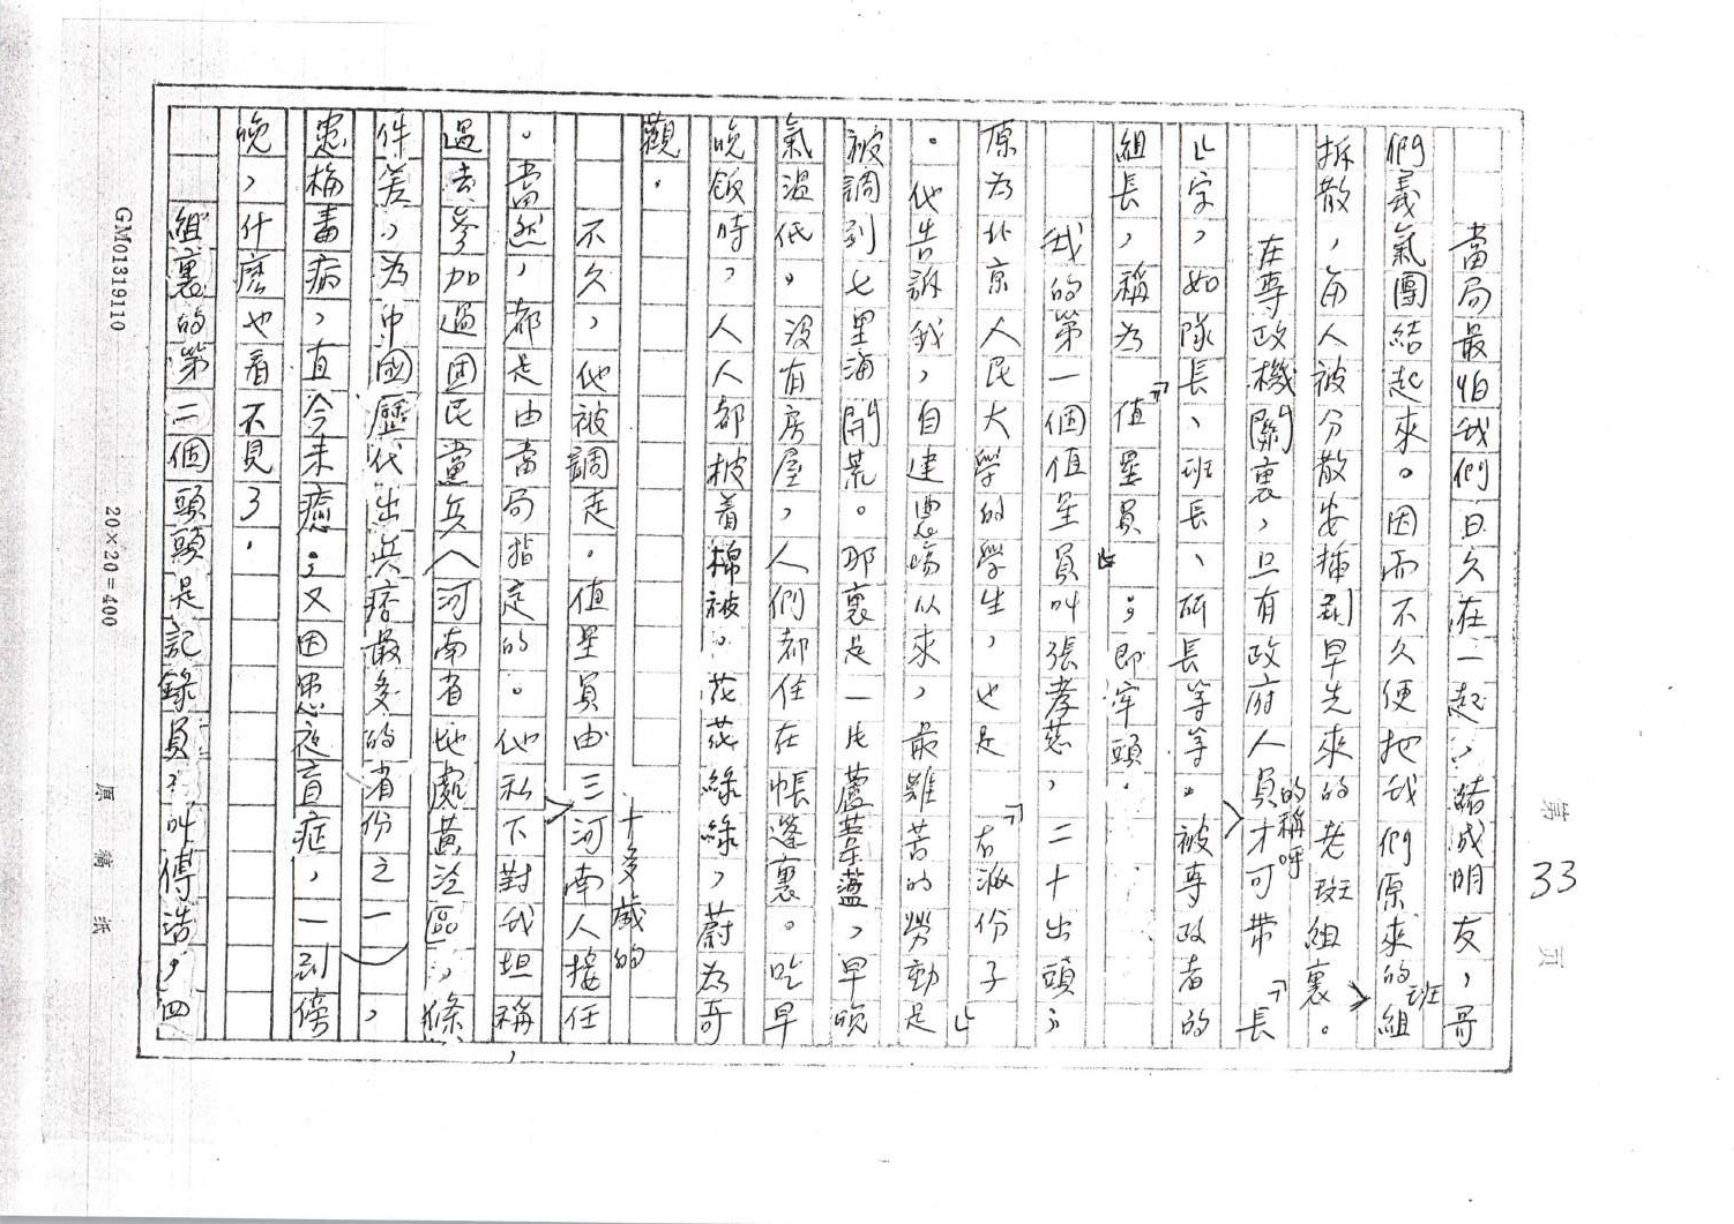 第33页
當局最怕我們日久在一起，結成朋友，哥
們義氣團結起來。因而不久便把我們原來的班組
拆散，每人被分散安插到早先來的老班組裏。
在專政機關裏，只有政府人員才可帶「長
」字的稱呼，如隊長、班長、所長等等。被專政者的
組長，稱為「值星員」；即牢頭。
我的第一個值星員叫張孝慈，二十出頭；
原為北京人民大學的學生，也是「右派份子」
。他告訴我，自建農場以來，最難苦的勞動是
被調到七里海開荒。那裏是一片蘆葦蕩，早晚
氣溫低。沒有房屋，人們都住在帳篷裏。吃早
晚飯時，人人都披着棉被。花花綠綠，蔚為奇
觀。
不久，他被調走。值星員由三十多歲的河南人接任
。當然，都是由當局指定的。他私下對我坦稱，
過去參加過國民黨兵（河南省地處黃泛區，條
件差，為中國歷代出兵痞最多的省份之一），
患梅毒病，直今未癒；又因患夜盲症，一到傍
晚，什麼也看不見了。
組裏的第二個頭頭是記錄員，叫傅浩，四
GM01319110
20×20=400
原稿紙